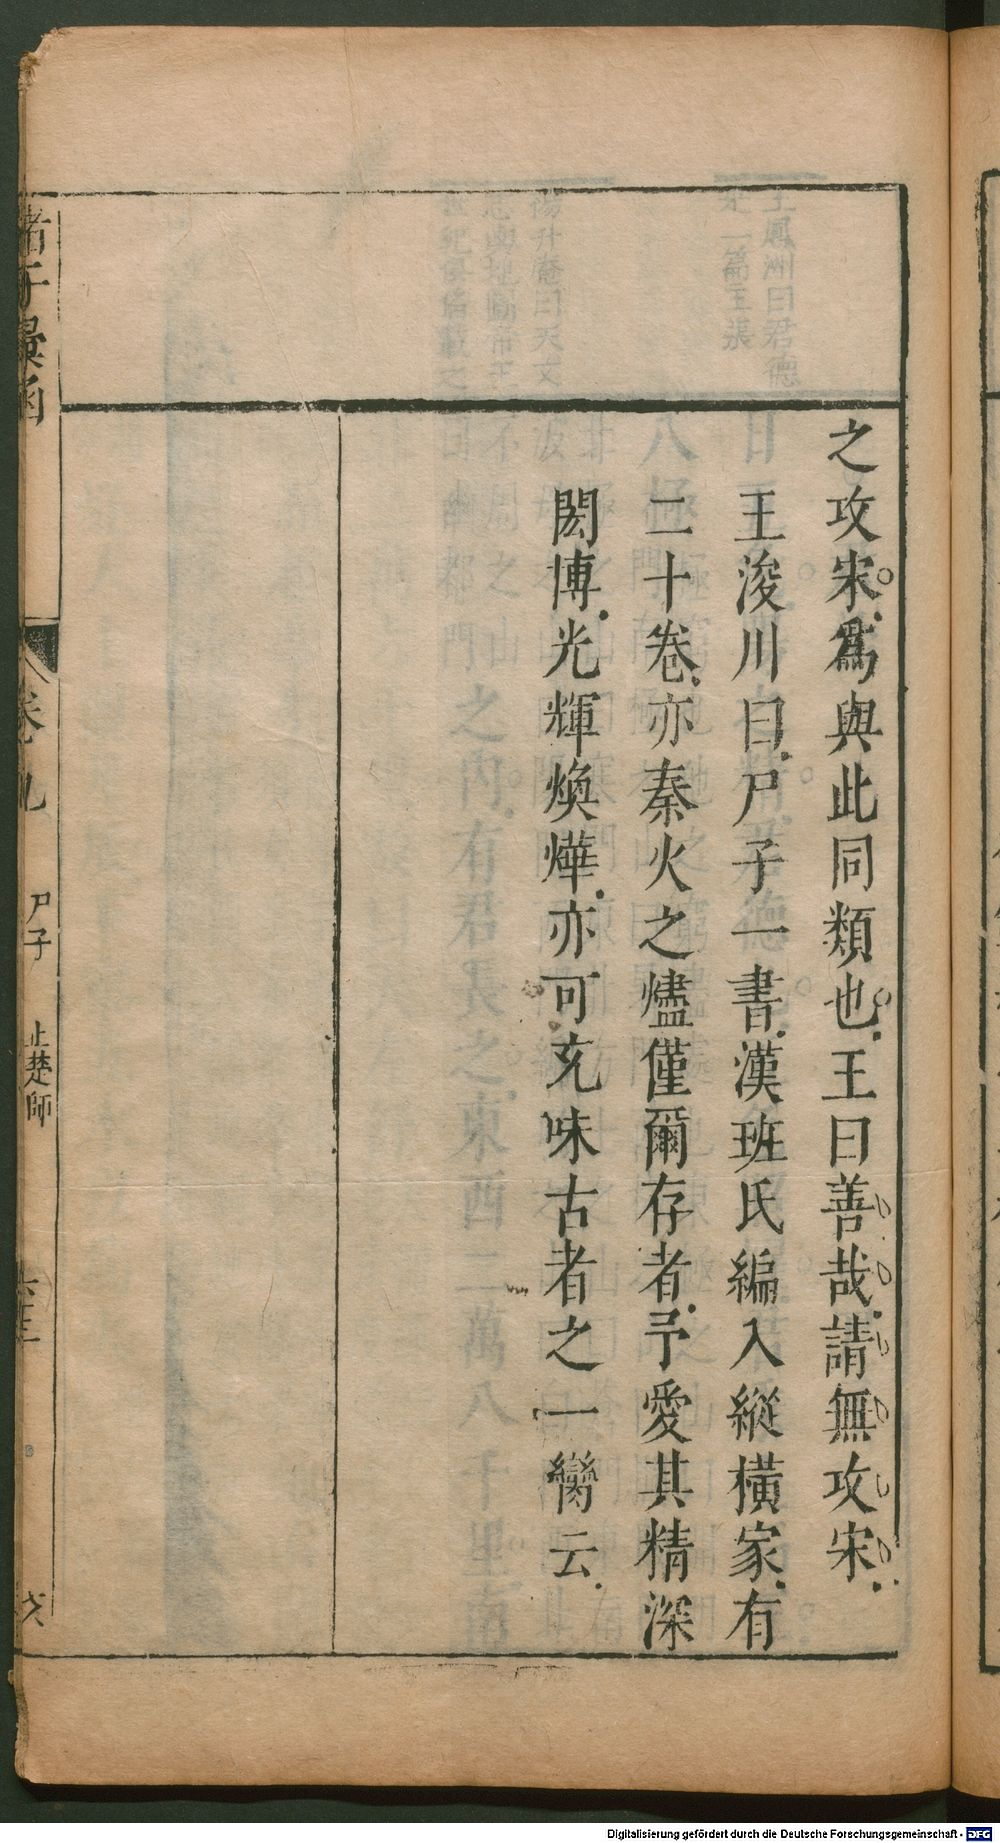 之攻宋爲與此同類也王曰善哉請無攻宋
王浚川曰尸子一書漢班氏編入縱橫家有
二十卷亦秦火之燼僅爾存者予愛其精深
閎博光輝煥燁亦可充味古者之一臠云
諸子彙函
卷九
尸子
止楚師
六十三
Digitalisierung gefördert durch die Deutsche Forschungsgemeinschaft - DFG